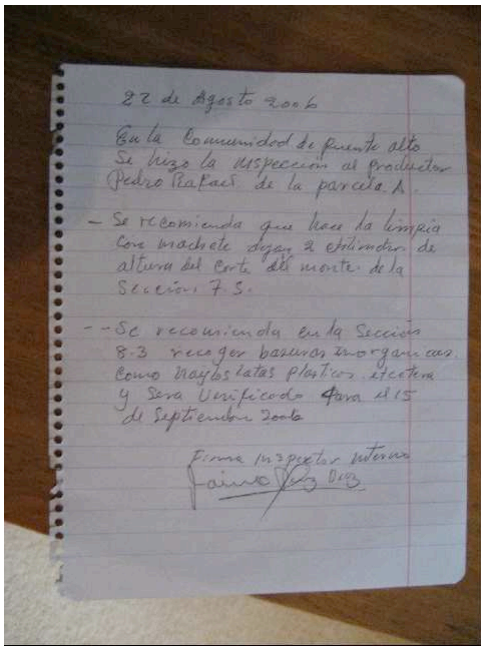 22 de Agosto 2006
En la Comunidad de puente alto
Se hizo la inspección al productor
Pedro Rafael de la parcela A.
- Se recomienda que hace la limpia
con machete dejar 2 de
altura del corte del monte de la
Sección 7.3.
-- Se recomienda en la Sección
8.3 recoger basuras inorganicas
como latas plasticos etcetera
y sera Verificado para el 15
de Septiembre 2006
Firma inspector interno